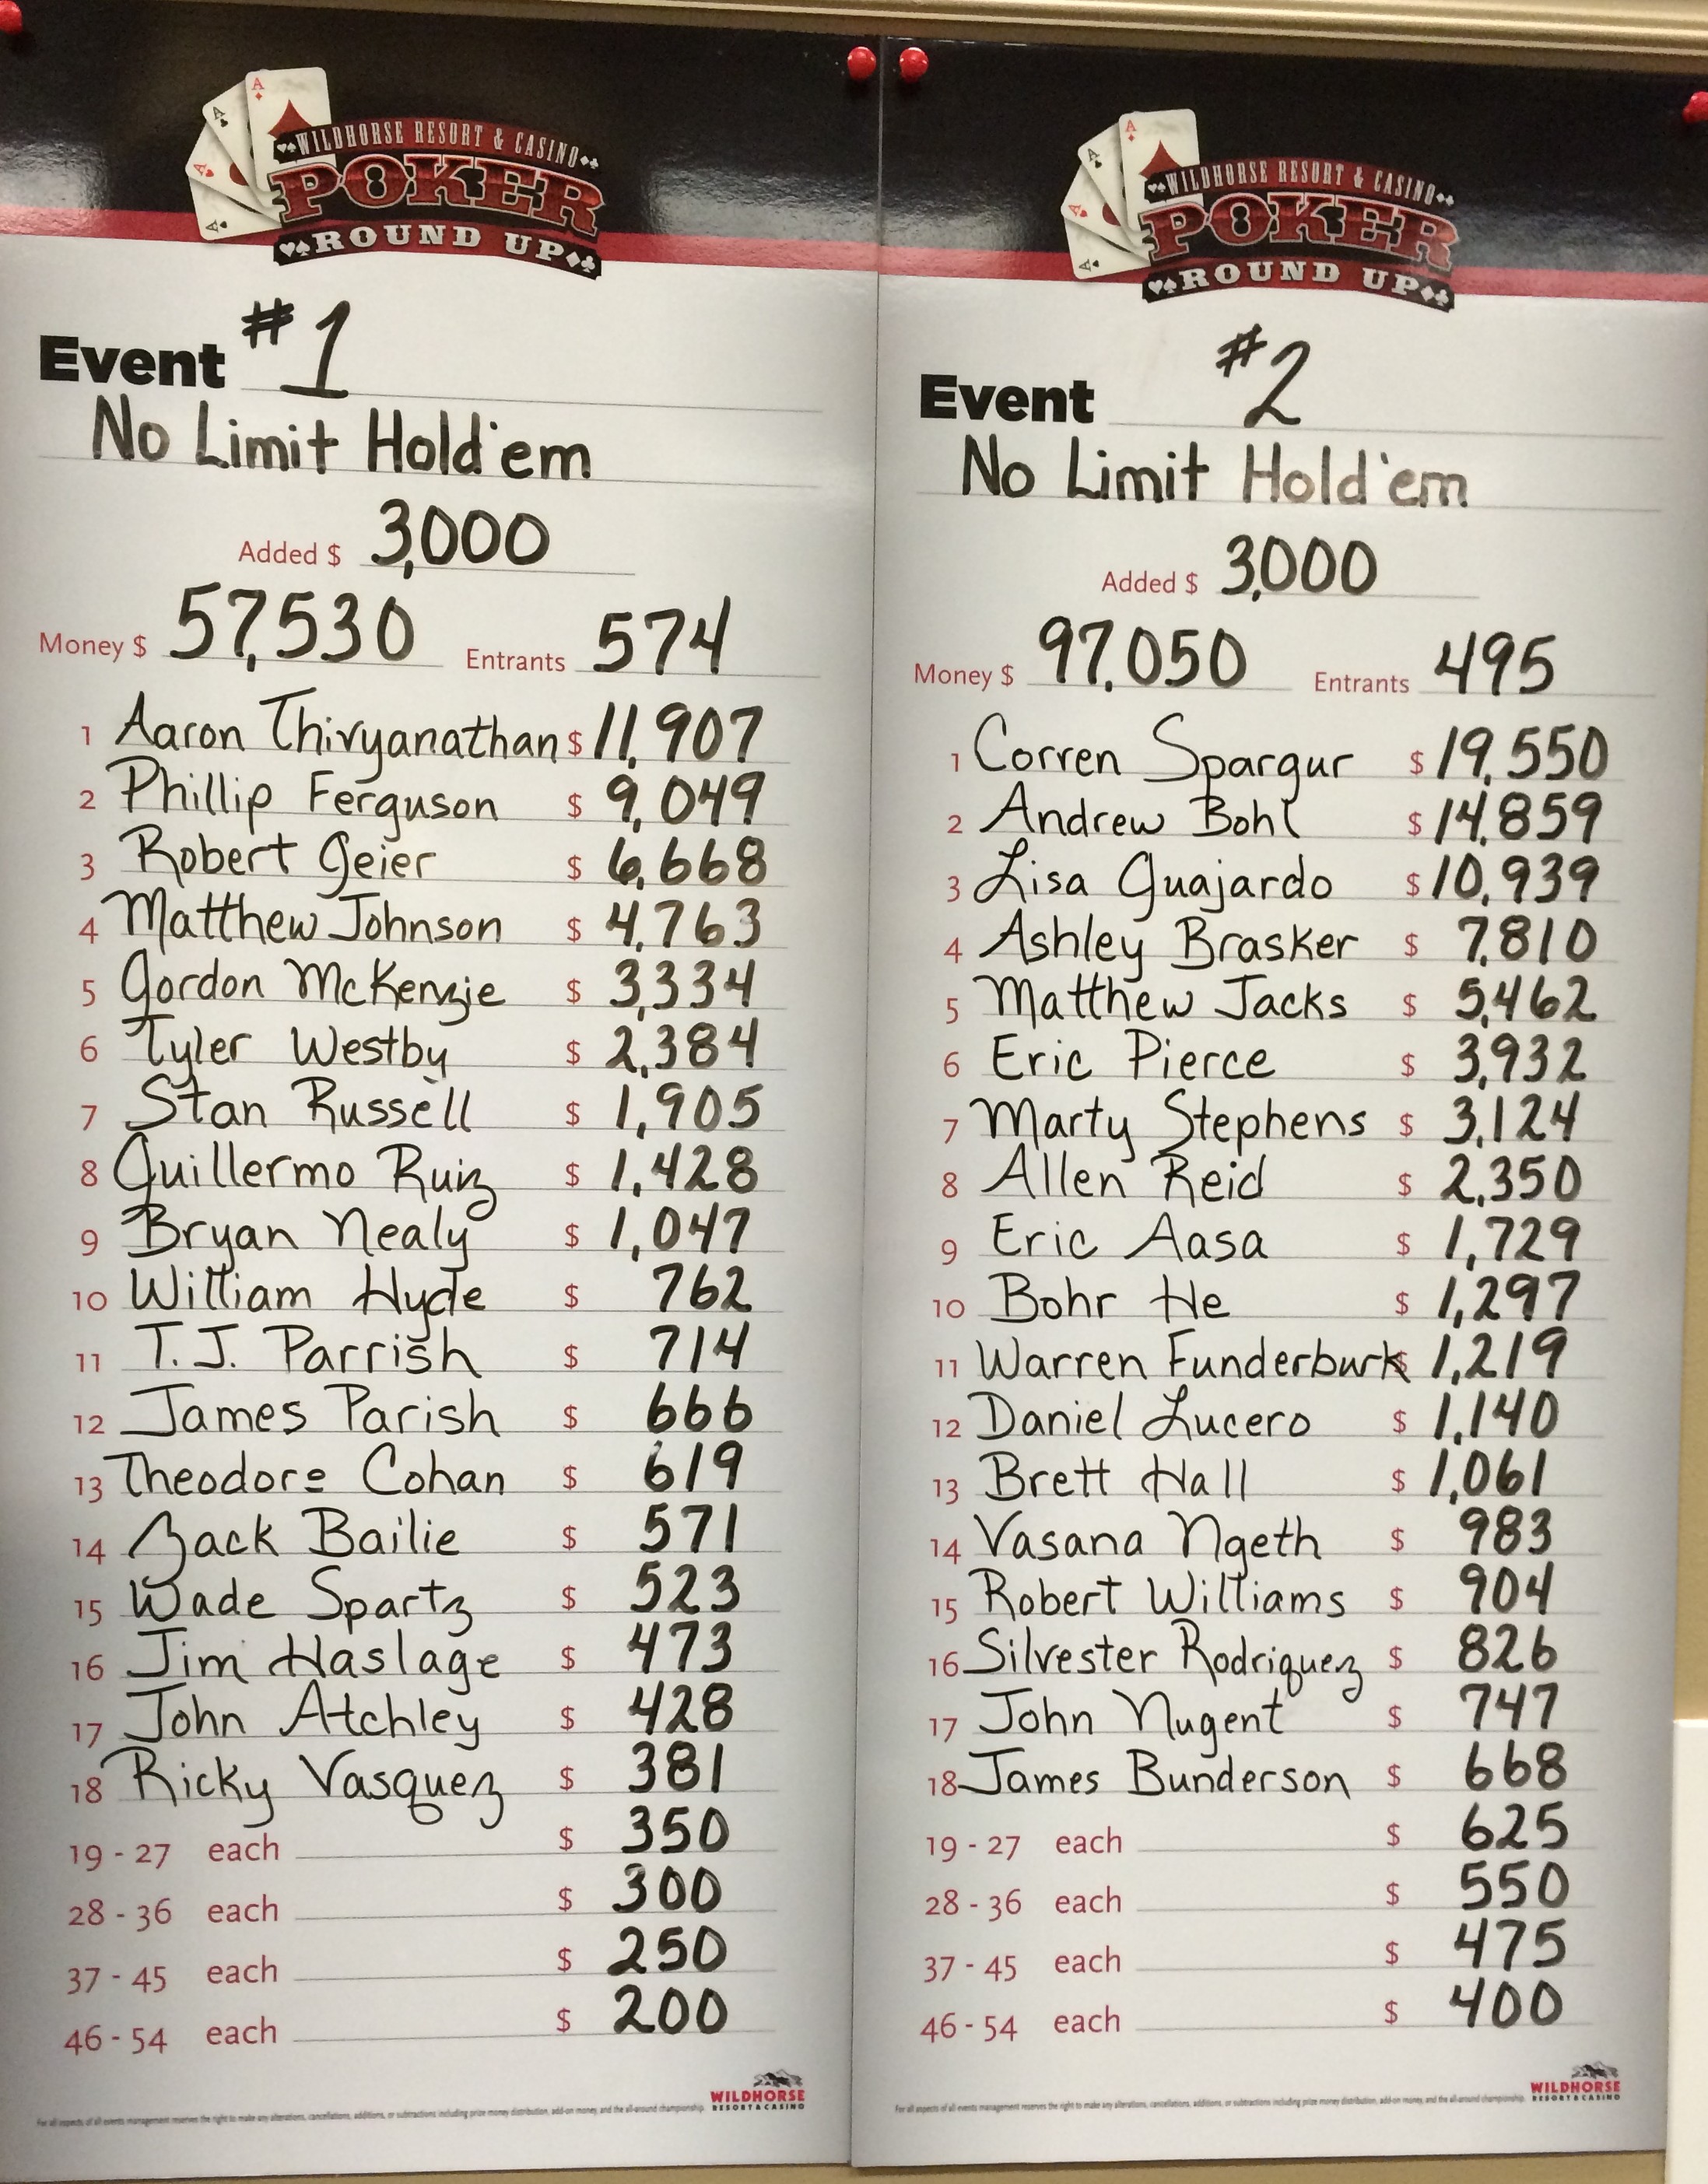 WILDHORSE RESORT & CASINO
POKER
ROUND UP
Event #1
No Limit Hold'em
Added $ 3,000
Money $ 57,530 Entrants 574
1 Aaron Thivyanathan $ 11,907
2 Phillip Ferguson $ 9,049
3 Robert Geier $ 6,668
4 Matthew Johnson $ 4,763
5 Gordon McKenzie $ 3,334
6 Tyler Westby $ 2,384
7 Stan Russell $ 1,905
8 Guillermo Ruiz $ 1,428
9 Bryan Nealy $ 1,047
10 William Hyde $ 762
11 T.J. Parrish $ 714
12 James Parish $ 666
13 Theodore Cohan $ 619
14 Zack Bailie $ 571
15 Wade Spartz $ 523
16 Jim Haslage $ 473
17 John Atchley $ 428
18 Ricky Vasquez $ 381
19 - 27 each $ 350
28 - 36 each $ 300
37 - 45 each $ 250
46 - 54 each $ 200
WILDHORSE
RESORT & CASINO
For all aspects of all events management reserves the right to make any alterations, cancellations, additions, or subtractions including prize money distribution, add-on money, and the all-around championship.
WILDHORSE RESORT & CASINO
POKER
ROUND UP
Event #2
No Limit Hold'em
Added $ 3,000
Money $ 97,050 Entrants 495
1 Corren Spargur $ 19,550
2 Andrew Bohl $ 14,859
3 Lisa Guajardo $ 10,939
4 Ashley Brasker $ 7,810
5 Matthew Jacks $ 5,462
6 Eric Pierce $ 3,932
7 Marty Stephens $ 3,124
8 Allen Reid $ 2,350
9 Eric Aasa $ 1,729
10 Bohr He $ 1,297
11 Warren Funderburk $ 1,219
12 Daniel Lucero $ 1,140
13 Brett Hall $ 1,061
14 Vasana Ngeth $ 983
15 Robert Williams $ 904
16 Silvester Rodriquez $ 826
17 John Nugent $ 747
18 James Bunderson $ 668
19 - 27 each $ 625
28 - 36 each $ 550
37 - 45 each $ 475
46 - 54 each $ 400
WILDHORSE
RESORT & CASINO
For all aspects of all events management reserves the right to make any alterations, cancellations, additions, or subtractions including prize money distribution, add-on money, and the all-around championship.